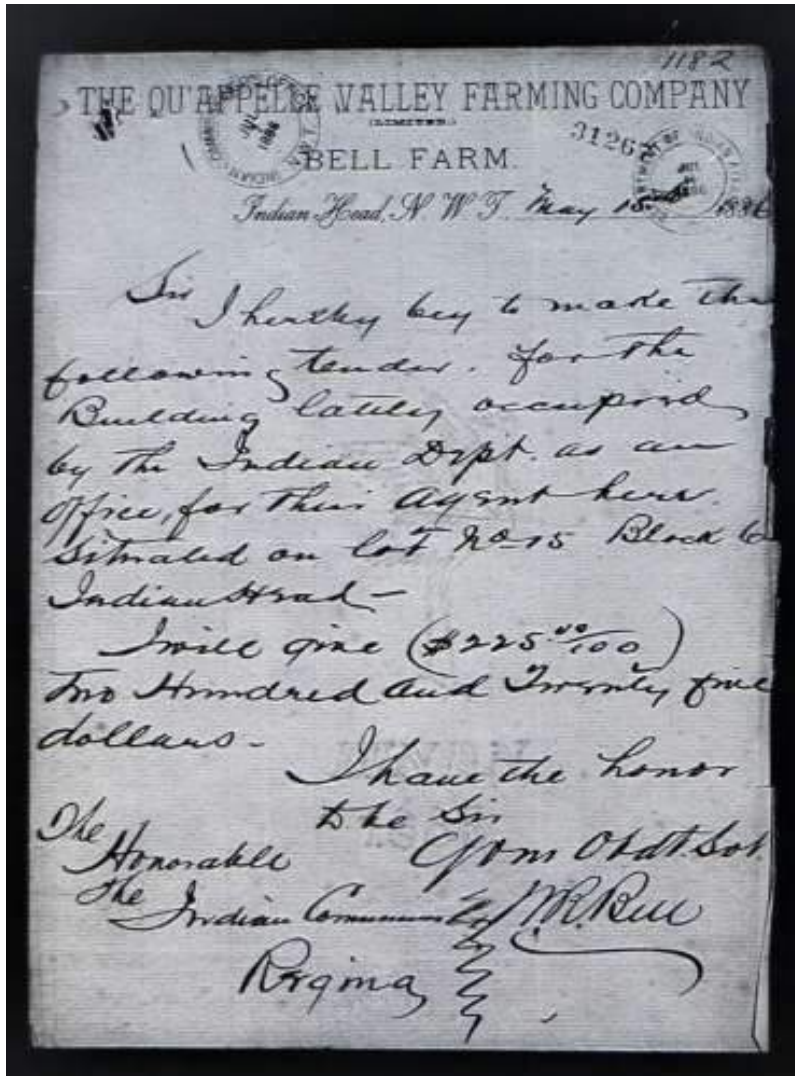 1182
THE QU'APPELLE VALLEY FARMING COMPANY
(LIMITED.)
31267
BELL FARM.
Indian Head, N. W. T. May 15 1886
Sir
I hereby beg to make the
following tender. for the
Building lately occupied
by the Indian Dept. as an
office, for their Agent here.
Situated on lot No 15 Block 6
Indian Head –
I will give ($225.00/100)
Two Hundred and Twenty five
dollars –
I have the honor
to be Sir
Your Obdt. Svt.
The
Honorable
The
Indian Commissioner
W.R. Bell
Regina